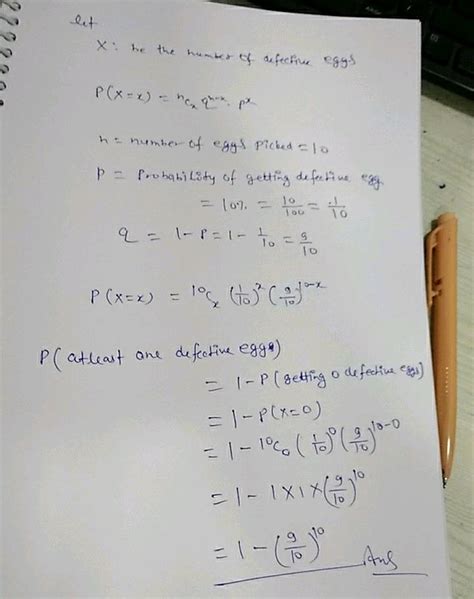 let
X: be the number of defective eggs
P(X=x) = ⁿCₓ qⁿ⁻ˣ. pˣ
n = number of eggs picked = 10
P = Probability of getting defective egg
= 10% = 10/100 = 1/10
q = 1-P = 1 - 1/10 = 9/10
P(X=x) = ¹⁰Cₓ (1/10)ˣ (9/10)¹⁰⁻ˣ
P(atleast one defective eggs)
= 1-P(getting 0 defective eggs)
= 1-P(X=0)
= 1-¹⁰C₀ (1/10)⁰ (9/10)¹⁰⁻⁰
= 1 - 1X1X(9/10)¹⁰
= 1 - (9/10)¹⁰ Ans